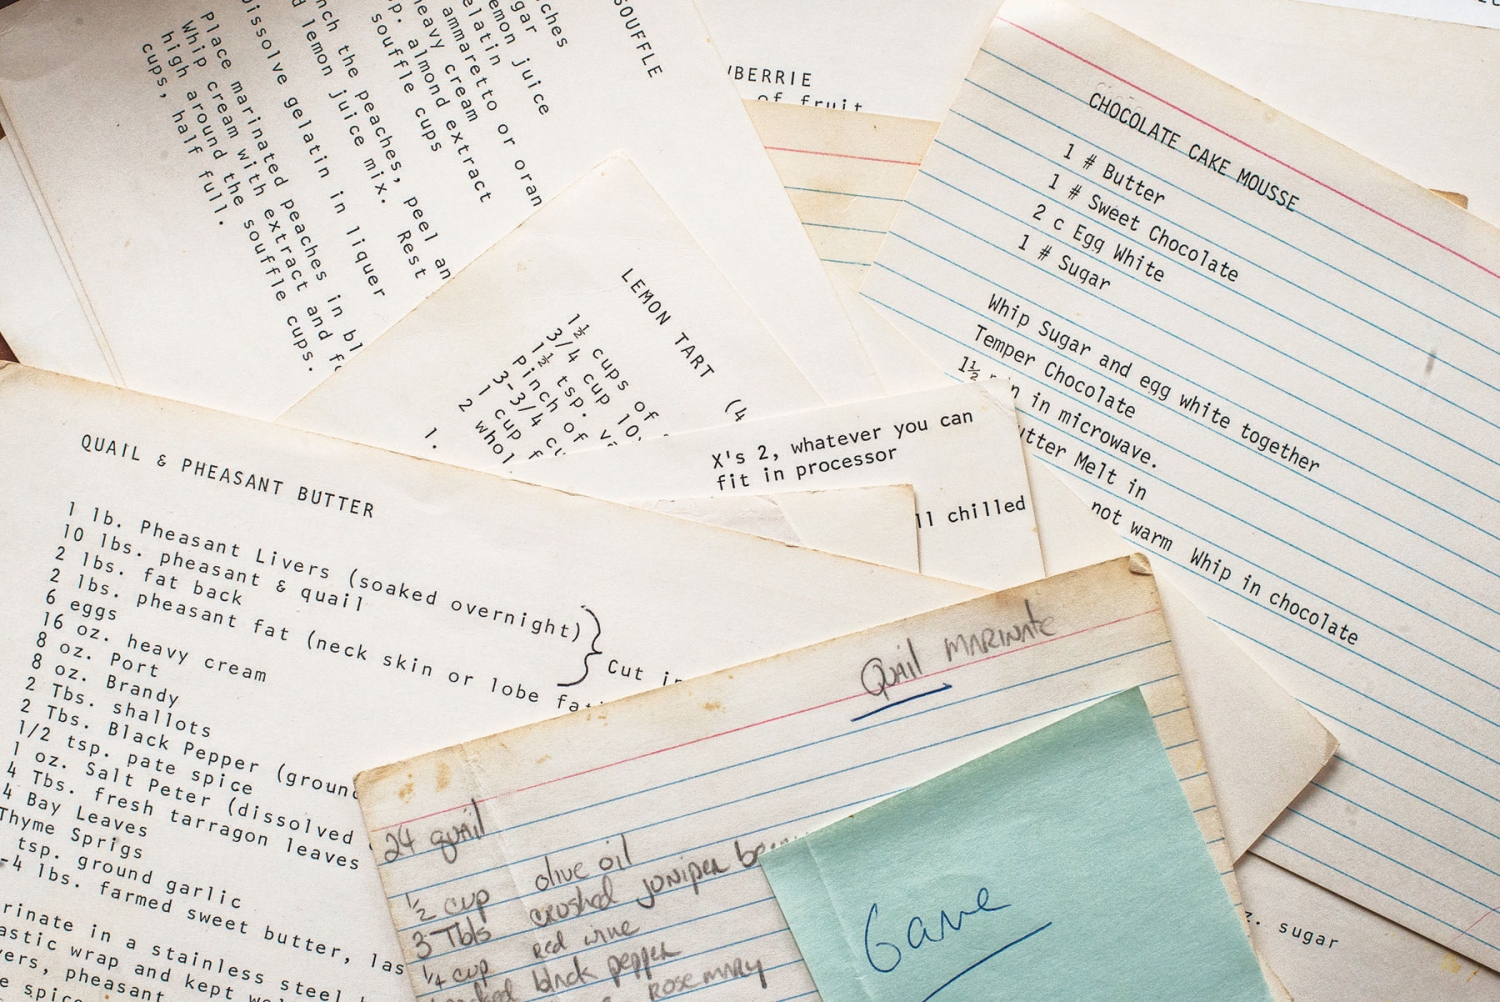 SOUFFLE
ches
gar
emon juice
elatin
ammaretto or oran
heavy cream
p. almond extract
souffle cups
nch the peaches, peel an
d lemon juice mix. Rest
issolve gelatin in liquer
Place marinated peaches in bl
Whip cream with extract and f
high around the souffle cups.
cups, half full.
BERRIE
of fruit
CHOCOLATE CAKE MOUSSE
1 # Butter
1 # Sweet Chocolate
2 c Egg White
1 # Sugar
Whip Sugar and egg white together
Temper Chocolate
1½ in in microwave.
utter Melt in
not warm Whip in chocolate
LEMON TART (4
1½ cups of
3/4 cup 10
1½ tsp. v
Pinch of
3-3/4 c
1 cup f
2 whol
1.
X's 2, whatever you can
fit in processor
ll chilled
QUAIL & PHEASANT BUTTER
1 lb. Pheasant Livers (soaked overnight)
10 lbs. pheasant & quail
2 lbs. fat back
2 lbs. pheasant fat (neck skin or lobe fat
Cut in
6 eggs
16 oz. heavy cream
8 oz. Port
8 oz. Brandy
2 Tbs. shallots
2 Tbs. Black Pepper (ground
1/2 tsp. pate spice
1 oz. Salt Peter (dissolved
4 Tbs. fresh tarragon leaves
4 Bay Leaves
Thyme Sprigs
tsp. ground garlic
-4 lbs. farmed sweet butter, las
rinate in a stainless steel
astic wrap and kept wel
vers, pheasant
e spice
Quail MARINATE
24 quail
½ cup olive oil
3 Tbls crushed juniper ber
¼ cup red wine
black pepper
rosemary
Game
z. sugar